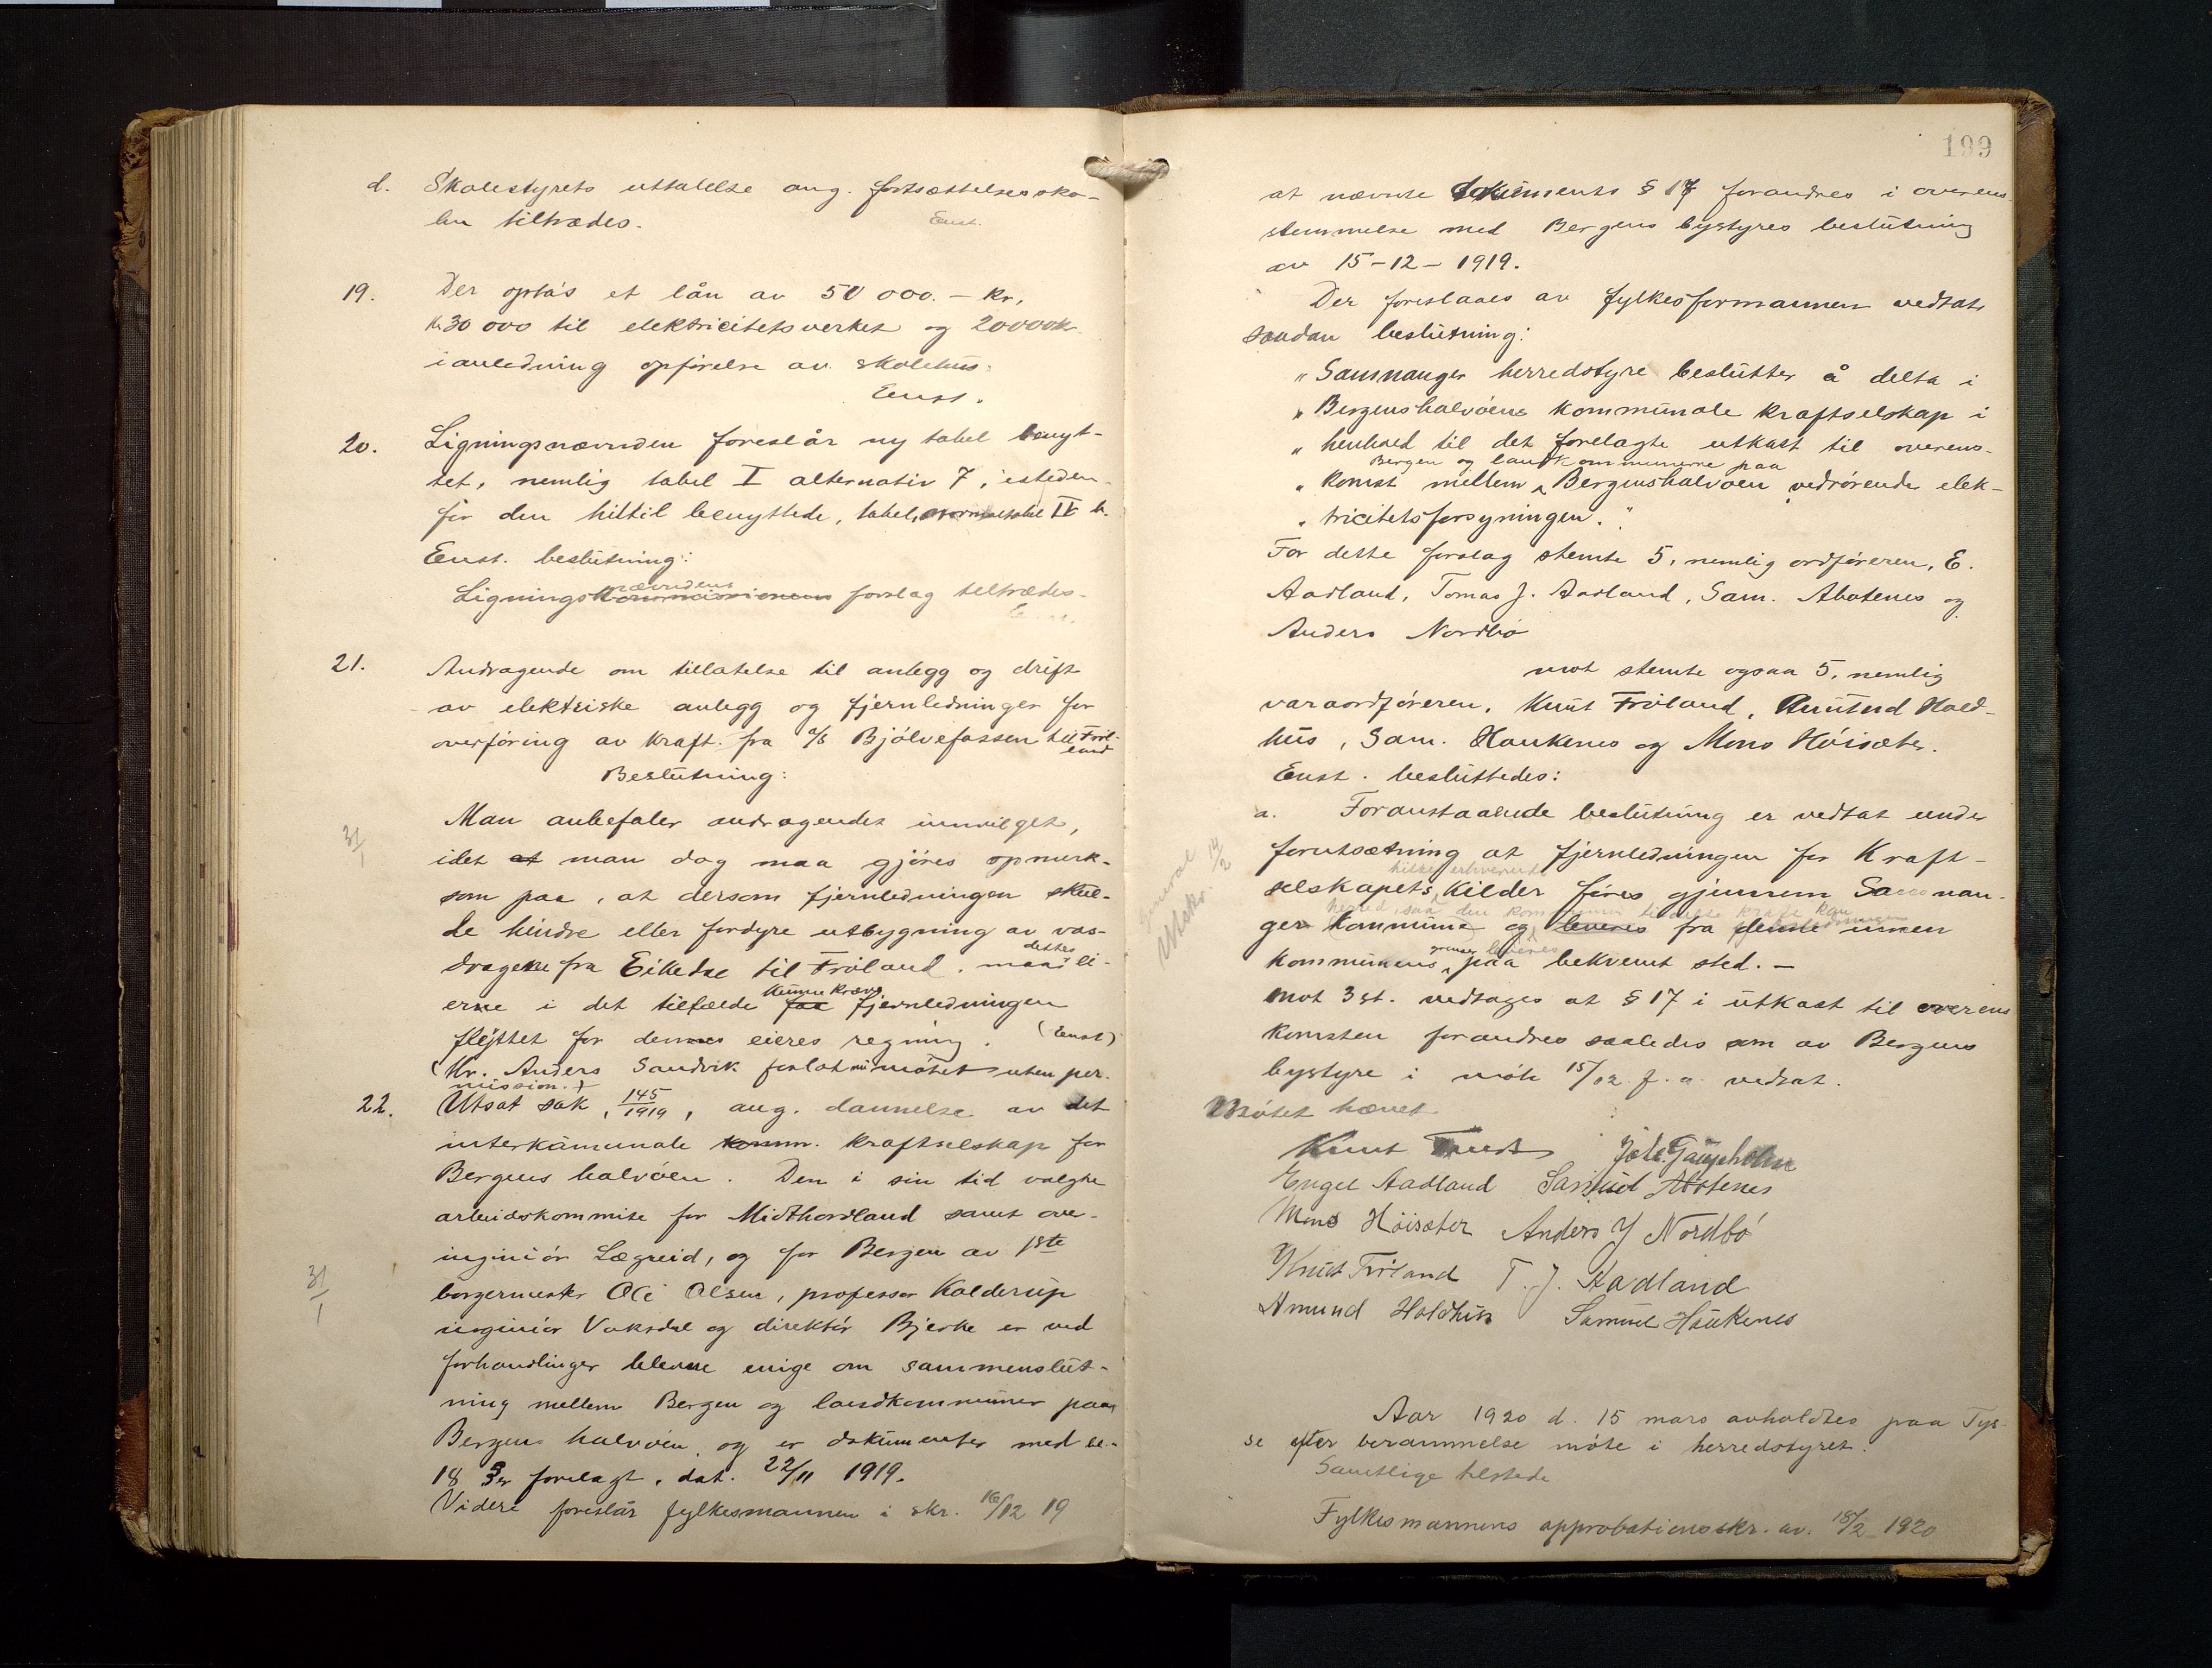 d. Skolestyrets uttalelse ang. fortsættelsessko-
len tiltrædes.
Enst.
19. Der opta's et lån av 50 000.- kr,
kr 30 000 til elektricitetsverket og 20000 kr
i anledning opførelse av skolehus.
Enst.
20. Ligningsnævnden foreslår ny tabel benyt-
tet, nemlig tabel I alternativ 7, isteden-
for den hittil benyttede, tabel, normaltabel IV b.
Enst. beslutning:
nævndens
Ligningskommissionens forslag tiltrædes.
21. Andragende om tillatelse til anlegg og drift
av elektriske anlegg og fjernledninger for
overføring av kraft fra a/s Bjølvefossen til Frø-
land
Beslutning:
31/1
Man anbefaler andragendet innvilget,
idet at man dog maa gjøres opmerk-
som paa, at dersom fjernledningen skul-
de hindre eller fordyre utbygning av vas-
dettes
dragene fra Eikedal til Frøland, maa ei-
kunne kræve
erne i det tilfælde faa fjernledningen
flyttet for dennes eieres regning. (Enst)
(Hr. Anders Sandvik forlot nu møtet uten per-
mission.)
22. Utsat sak, 145/1919, ang. dannelse av det
interkomunale komm. kraftselskap for
Bergens halvøen. Den i sin tid valgte
arbeidskommite for Midthordland samt over-
ingeniør Lægreid, og for Bergen av 1ste
31/1
borgermester Ole Olsen, professor Kolderup
ingeniør Vaksdal og direktør Bjerke er ved
forhandlinger blevne enige om sammenslut-
ning mellem Bergen og landkommuner paa
Bergens halvøen, og er dokumenter med be-
18 §er forelagt, dat. 22/11 1919.
Videre foreslår fylkesmannen i skr. 16/12 19
199
at nævnte dokuments § 17 forandres i overens
stemmelse med Bergens bystyres beslutning
av 15-12-1919.
Der foreslaaes av fylkesformannen vedtat
saadan beslutning:
"Samnanger herredstyre beslutter å delta i
"Bergenshalvøens kommunale kraftselskap i
"henhold til det forelagte utkast til overens-
Bergen og landkommunerne paa
"komst mellem Bergenshalvøen vedrørende elek-
"tricitetsforsyningen."
For dette forslag stemte 5, nemlig ordføreren, E.
Aadland, Tomas J. Aadland, Sam. Abotenes og
Anders Nordbø
mot stemte ogsaa 5, nemlig
varaordføreren, Knut Frøland, Amund Hold-
hus, Sam. Haukenes og Mons Høisæter.
Enst. besluttedes:
a. Foranstaaende beslutning er vedtat under
General
Utskr. 14/2
forutsætning at fjernledningen for Kraft-
selskapets kilder føres gjennem Samnan-
ger kommune og leveres fra denne innen
grenser leveres
kommunens paa bekvemt sted. -
Mot 3 st. vedtages at § 17 i utkast til overens
komsten forandres saaledes som av Bergens
bystyre i møte 15/12 f. a. vedtat.
Møtet hævet
Knut Tveit Johs. Gaupholm
Engel Aadland Samuel Abotenes
Mons Høisæter Anders J Nordbø
Knut Frøland T. J. Aadland
Amund Holdhus Samuel Haukenes
Aar 1920 d. 15 mars avholdtes paa Tys-
se efter berammelse møte i herredstyret.
Samtlige tilstede
Fylkesmannens approbationsskr. av. 18/2 1920